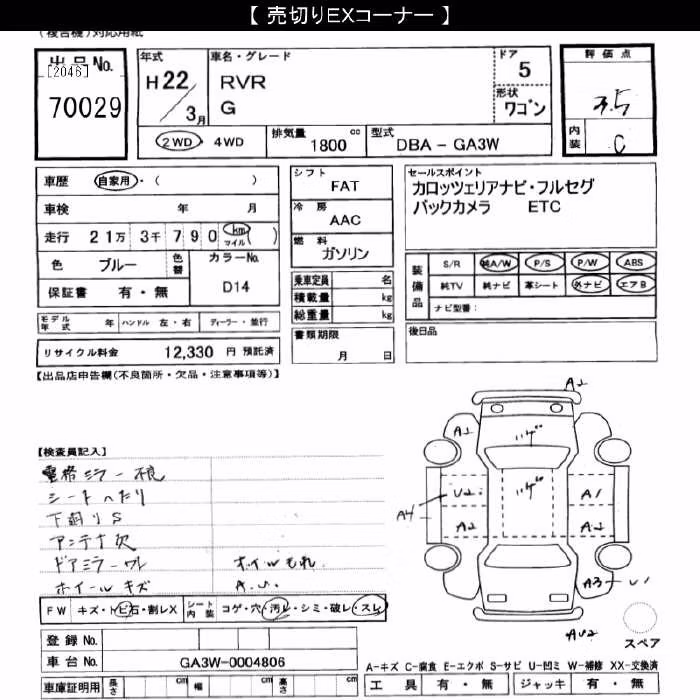 【 売切りEXコーナー 】
(複合機)対応用紙
出品No.
[2046]
70029
年式
H22/3月
車名・グレード
RVR
G
ドア
5
形状
ワゴン
評価点
3.5
内装
C
2WD 4WD
排気量
1800 cc
型式
DBA - GA3W
車歴 自家用・( )
車検 年 月
走行 21万 3千 790 km マイル ( )
色 ブルー 色替
カラーNo.
D14
保証書 有・無
モデル年式 年 ハンドル 左・右 ディーラー・並行
リサイクル料金 12,330 円 預託済
シフト
FAT
冷房
AAC
燃料
ガソリン
乗車定員 名
積載量 kg
総重量 kg
書類期限
月 日
セールスポイント
カロッツェリアナビ・フルセグ
バックカメラ ETC
装備品
S/R 純A/W P/S P/W ABS
純TV 純ナビ 革シート 外ナビ エアB
ナビ型番:
後日品
【出品店申告欄(不良箇所・欠品・注意事項等)】
【検査員記入】
電格ミラー不良
シートへたり
下廻りS
アンテナ欠
ドアミラーワレ オイルもれ
ホイールキズ A.U.
FW キズ・トビ石・割レX
シート内装 コゲ・穴・汚レ・シミ・破レ・スレ
登録No.
車台No. GA3W-0004806
車庫証明用 長さ cm 幅 cm 高さ cm
A2
A2
A4
U2
A2
A1
A2
A3
U1
AU2
スペア
A-キズ C-腐食 E-エクボ S-サビ U-凹ミ W-補修 XX-交換済
工具 有・無 ジャッキ 有・無